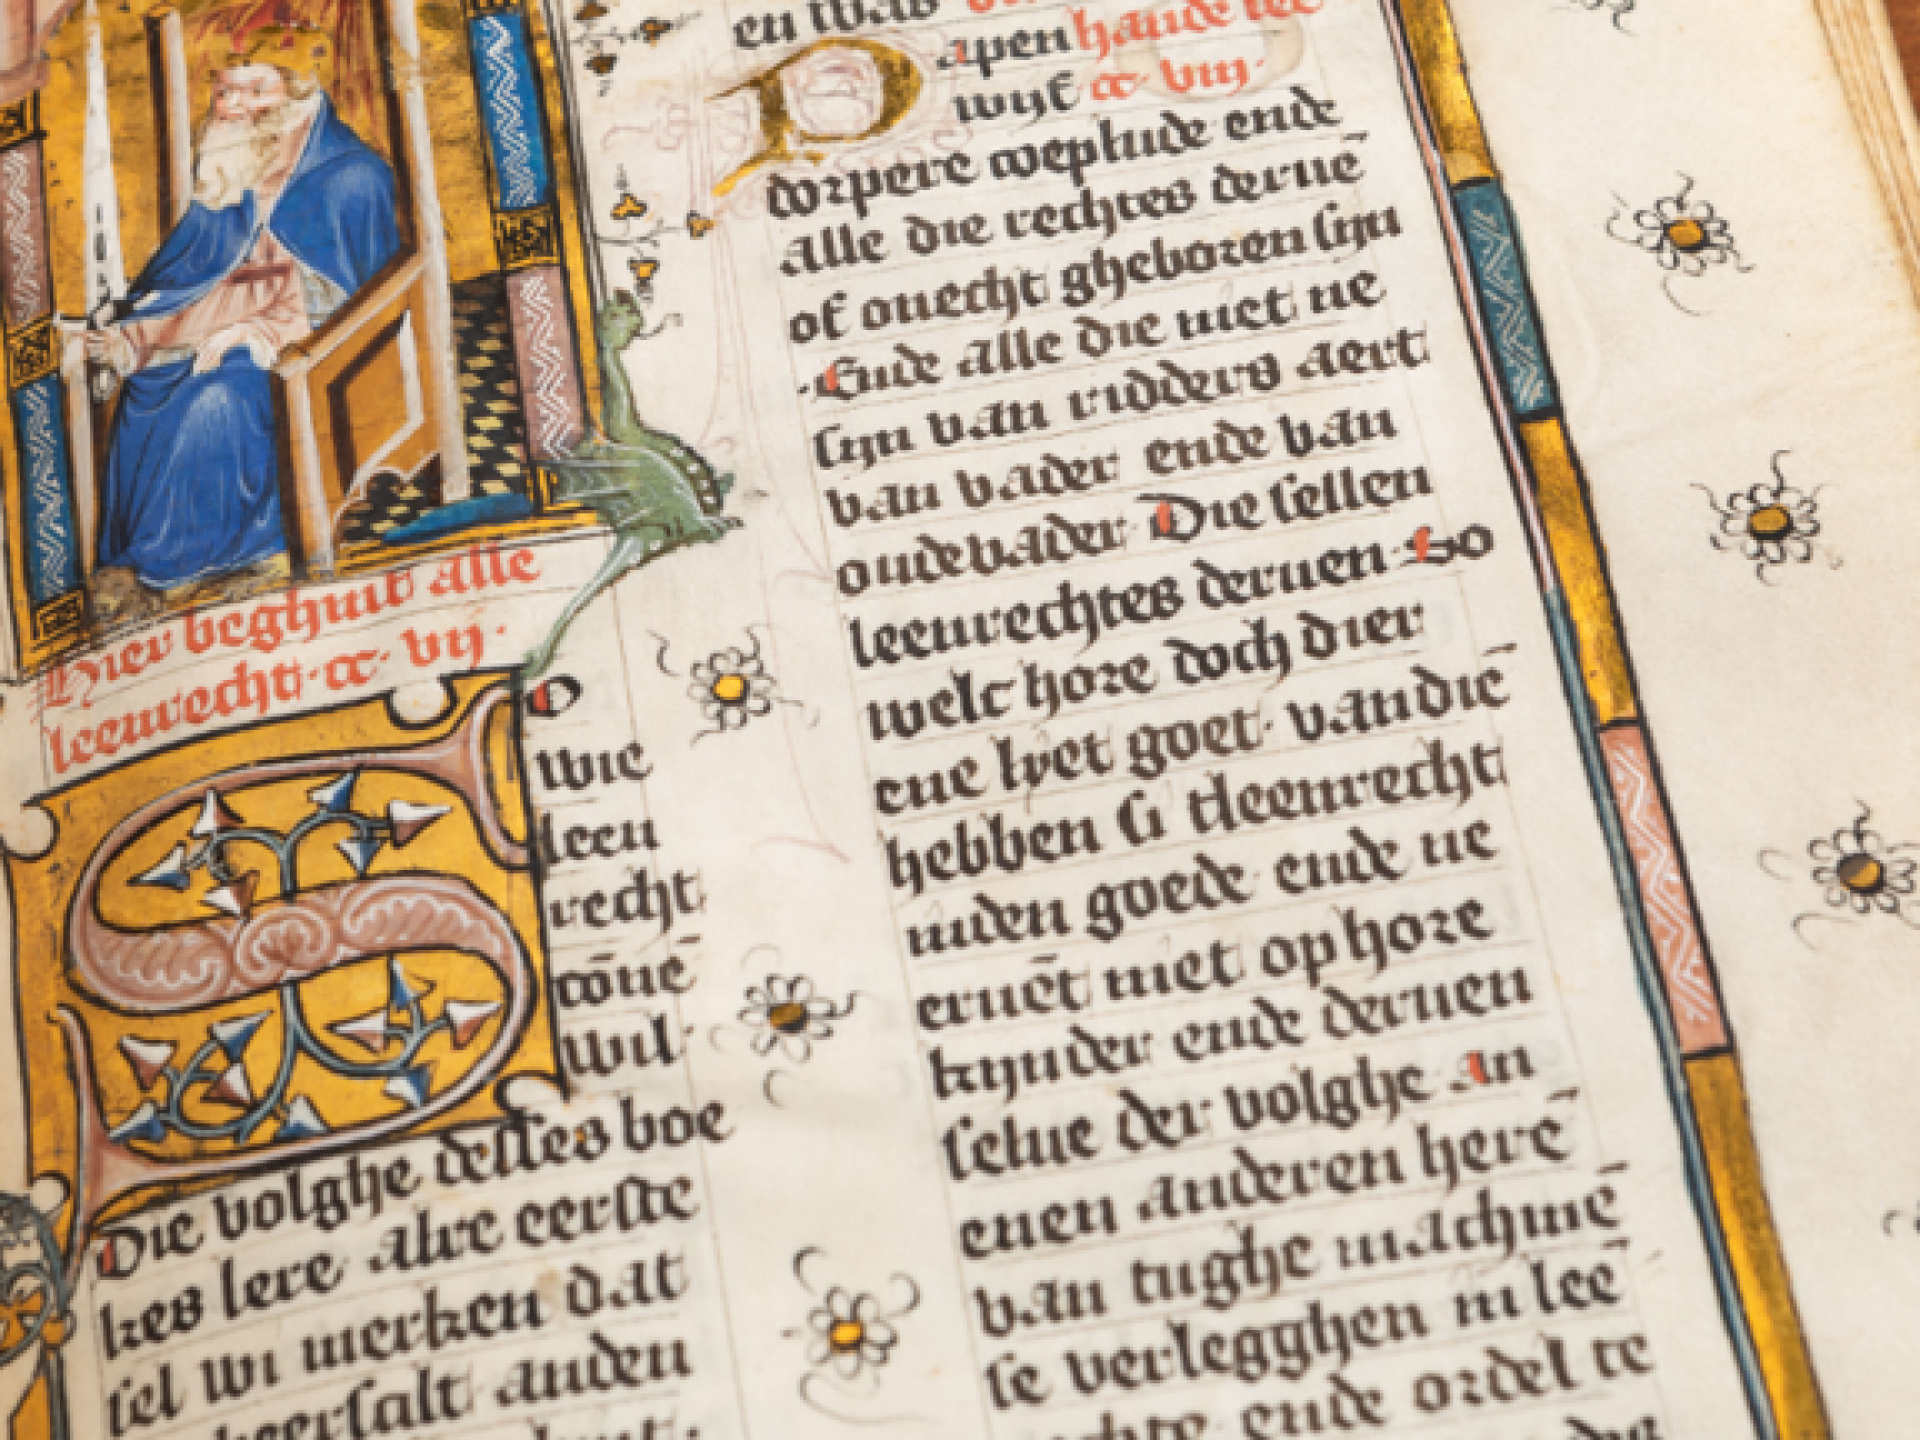 Hier beghint alle
leenrecht · cc · vij ·
So
wie
leen
recht
cōnē
wil ·
Die volghe desses boe
kes lere alre eerste
sel wi merken dat
heersalt anden
en was
apen hande lee
wijf cc · viij ·
dorpere coeplude ende
alle die rechtes deruē
of onecht gheboren sijn
· Ende alle die niet ne
sijn van ridders aert
van vader ende van
oudevader Die sellen
leenrechtes deruen · So
welc here doch dier
ene lyet goet · van diē
hebben si tleenrecht
inden goede ende ne
eruēt niet op hore
kynder ende deruen
selue der volghe an
enen anderen herē
van tughe machmē
se verlegghen in lēē
ende ordel te